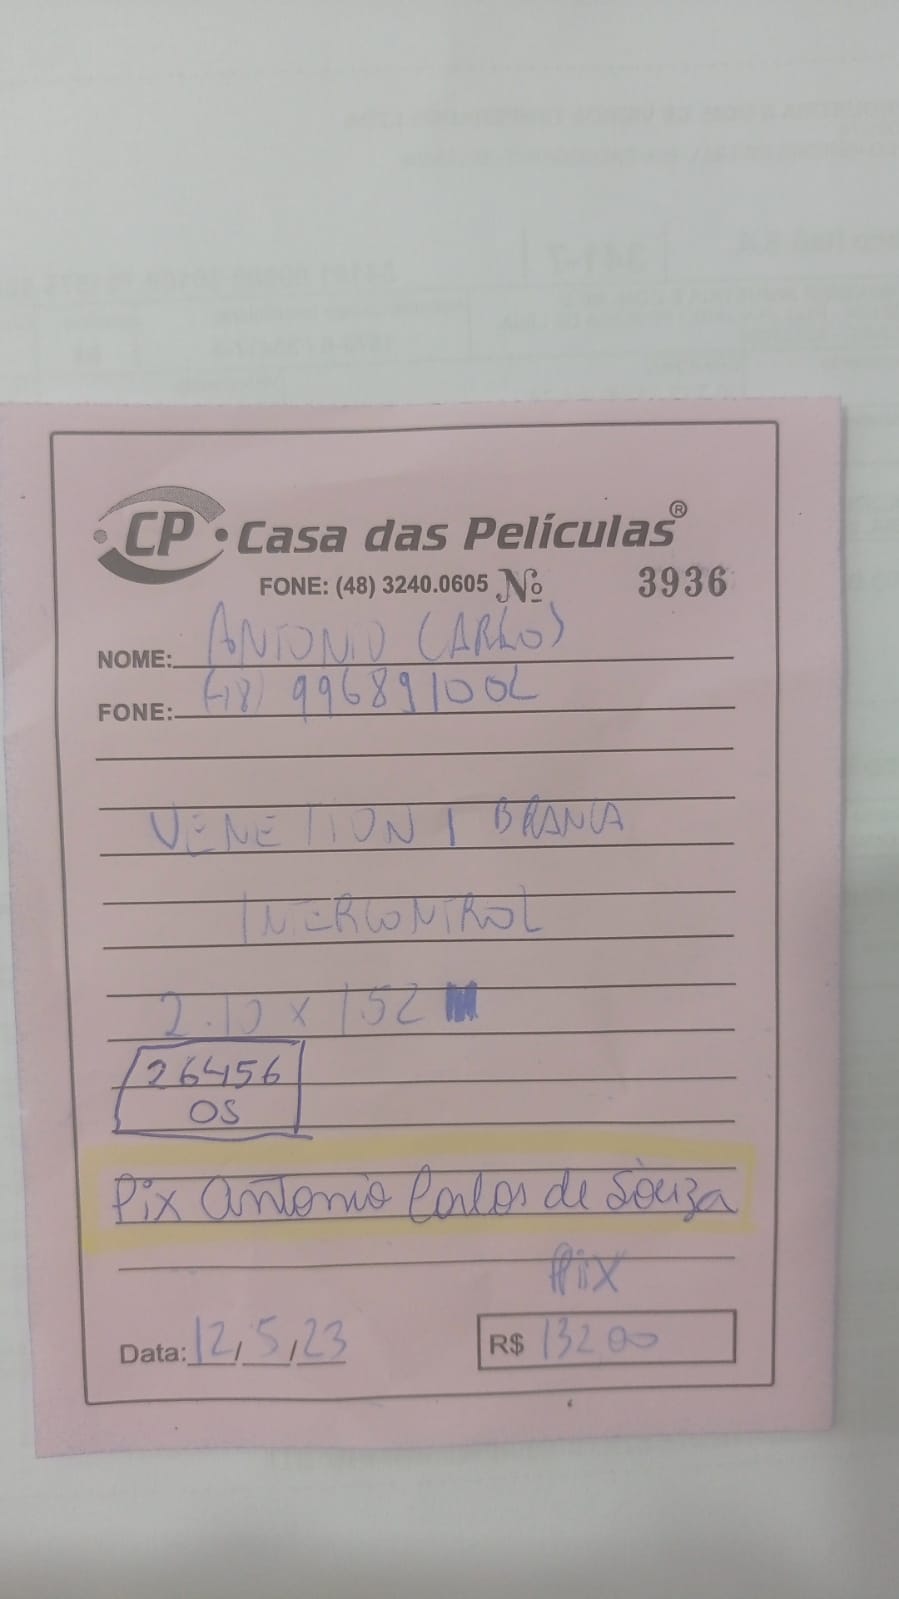 CP Casa das Películas®
FONE: (48) 3240.0605 Nº 3936
NOME: ANTONIO CARLOS
FONE: (48) 99689100
VENETION 1 BRANCA
INTERCONTROL
2.10 x 1.52 M
26456
OS
Pix Antonio Carlos de Souza
Pix
Data: 12/5/23 R$ 132 00